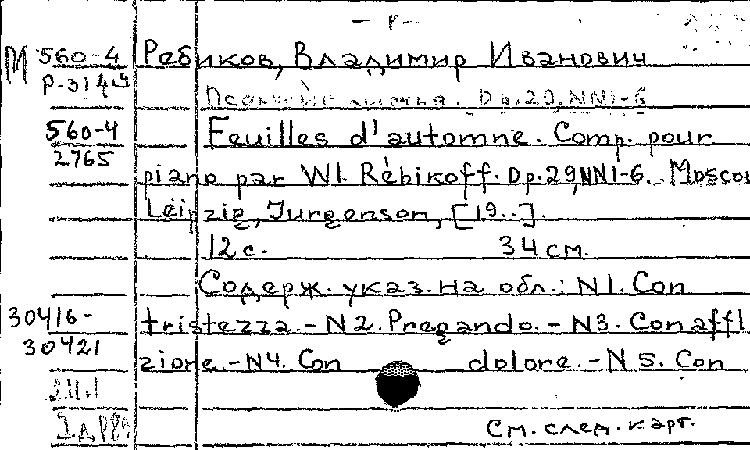 - Р -
М 560-4 Ребиков, Владимир Иванович
Р-314
листья. Op.29, NN1-6
560-4 Feuilles d'automne. Comp. pour
2765
piano par Wl. Rébikoff. Op.29, NN1-6. Moscou
Leipzig, Jurgenson, [19..].
12 с. 34 см.
Содерж. указ. на обл.: N1. Con
30416- tristezza - N2. Pregando. - N3. Con affl
30421
zione. - N4. Con dolore. - N5. Con
См. след. карт.